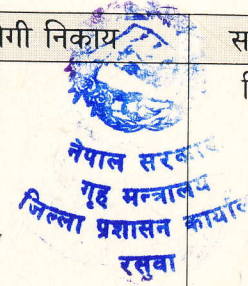 निकाय
नेपाल सरकार
गृह मन्त्रालय
जिल्ला प्रशासन कार्याल
रसुवा